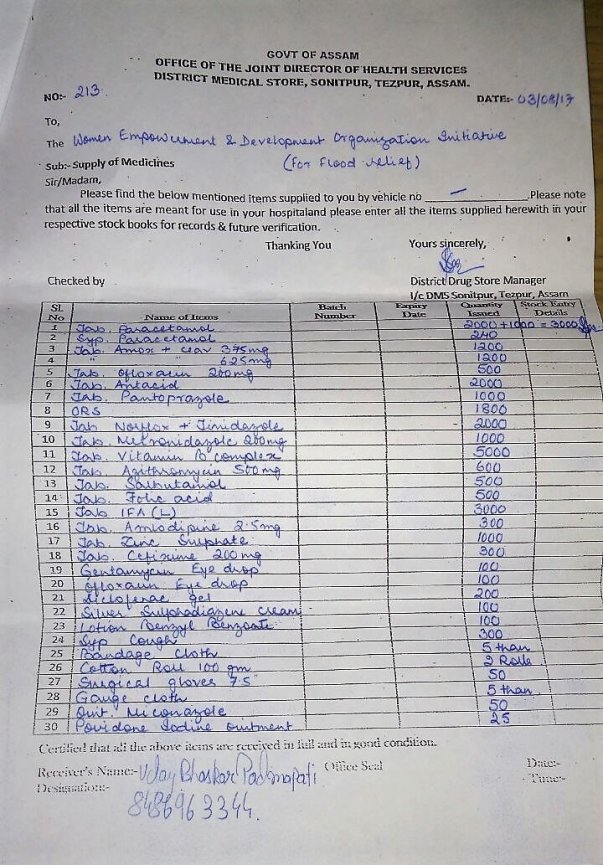 GOVT OF ASSAM
OFFICE OF THE JOINT DIRECTOR OF HEALTH SERVICES
DISTRICT MEDICAL STORE, SONITPUR, TEZPUR, ASSAM.
NO:- 213 DATE:- 03/08/17
To,
The Women Empowerment & Development Organization Initiative
Sub:- Supply of Medicines (For Flood relief)
Sir/Madam,
Please find the below mentioned items supplied to you by vehicle no — .Please note
that all the items are meant for use in your hospitaland please enter all the items supplied herewith in your
respective stock books for records & future verification.
Thanking You Yours sincerely,
Checked by District Drug Store Manager
I/c DMS Sonitpur, Tezpur, Assam
Sl. No Name of Items Batch Number Expiry Date Quantity Issued Stock Entry Details
1 Tab. Paracetamol 2000+1000 = 3000
2 Syp. Paracetamol 240
3 Tab. Amox + clav 375mg 1200
4 " 625mg 1200
5 Tab. Ofloxacin 200mg 500
6 Tab. Antacid 2000
7 Tab. Pantoprazole 1000
8 ORS 1800
9 Tab Norflox + Tinidazole 2000
10 Tab. Metronidazole 200mg 1000
11 Tab. Vitamin B complex 5000
12 Tab. Azithromycin 500mg 600
13 Tab. Salbutamol 500
14 Tab. Folic acid 500
15 Tab IFA (L) 3000
16 Tab. Amlodipine 2.5mg 300
17 Tab. Zinc Sulphate 1000
18 Tab. Cefixime 200mg 300
19 Gentamycin Eye drop 100
20 Ofloxacin Eye drop 100
21 Diclofenac gel 200
22 Silver Sulphadiazene cream 100
23 Lotion Benzyl Benzoate 100
24 Syp Cough 300
25 Bandage cloth 5 than
26 Cotton Roll 100 gm 2 Rolls
27 Surgical gloves 7.5" 50
28 Gauge cloth 5 than
29 Oint. Miconazole 50
30 Povidone Iodine ointment 25
Certified that all the above items are received in full and in good condition.
Receiver's Name:- Uday Bhaskar Office Seal Date:-
Designation:- Time:-
8486963344.